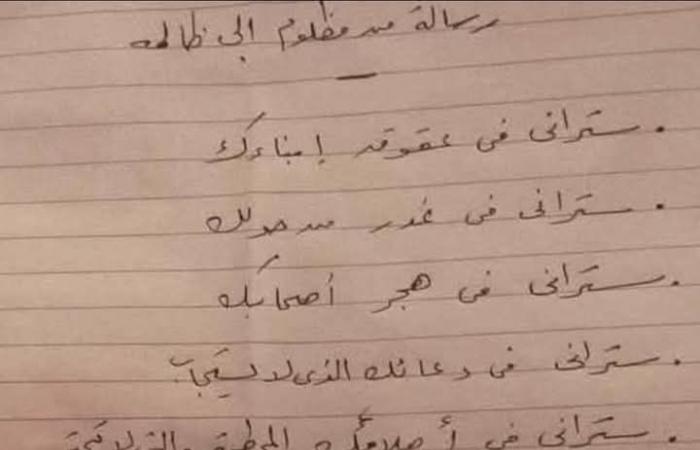 رسالة من مظلوم إلى ظالمه
ـ
. ستراني في عقوق إبناءك
. ستراني في غدر من حولك
. ستراني في هجر أصحابك
. ستراني في دعائك الذي لا يستجاب
. ستراني في أحلامك